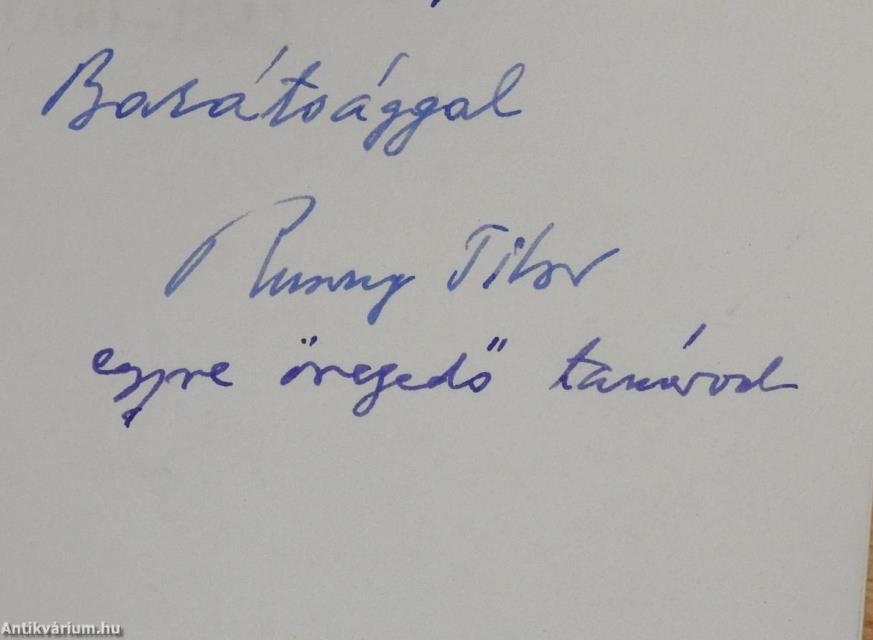 Barátsággal
Tibor
egyre öregedő tanárod
Antikvárium.hu